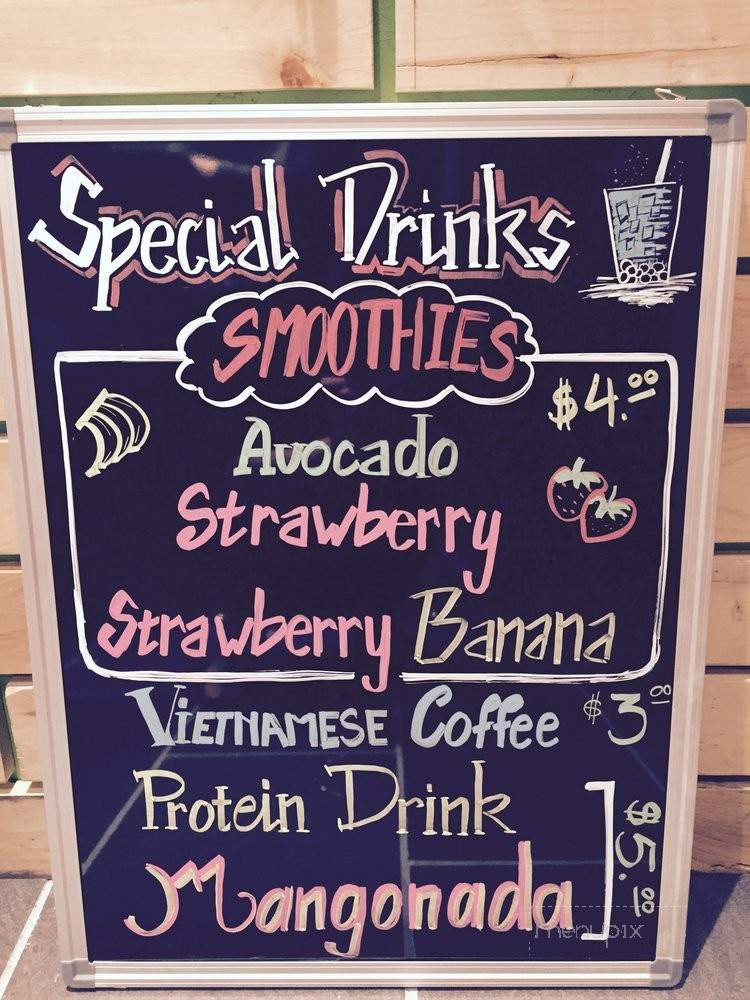 Special Drinks
SMOOTHIES
$4.00
Avocado
Strawberry
Strawberry Banana
VIETNAMESE Coffee $3.00
Protein Drink
Mangonada
$5.00
menupix